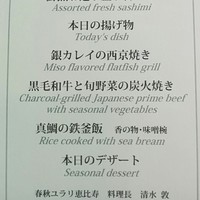 Assorted fresh sashimi
本日の揚げ物
Today's dish
銀カレイの西京焼き
Miso flavored flatfish grill
黒毛和牛と旬野菜の炭火焼き
Charcoal-grilled Japanese prime beef
with seasonal vegetables
真鯛の鉄釜飯 香の物・味噌椀
Rice cooked with sea bream
本日のデザート
Seasonal dessert
春秋ユラリ恵比寿 料理長 清水 敦